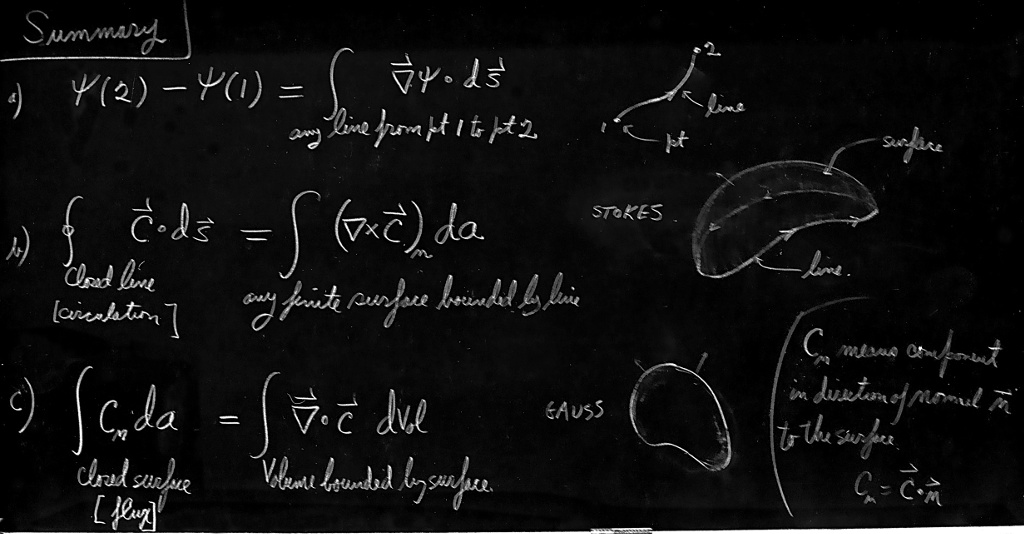 Summary
a) ψ(2) − ψ(1) = ∫ ∇⃗ψ · ds⃗
any line from pt 1 to pt 2
2
line
1
pt
surface
b) ∮ C⃗ · ds⃗ = ∫ (∇×C⃗)ₙ da
closed line
[circulation]
any finite surface bounded by line
STOKES
line.
c) ∫ Cₙ da = ∫ ∇⃗ · C⃗ dVol
closed surface
[flux]
Volume bounded by surface.
GAUSS
Cₙ means component
in direction of normal n⃗
to the surface.
Cₙ = C⃗ · n⃗